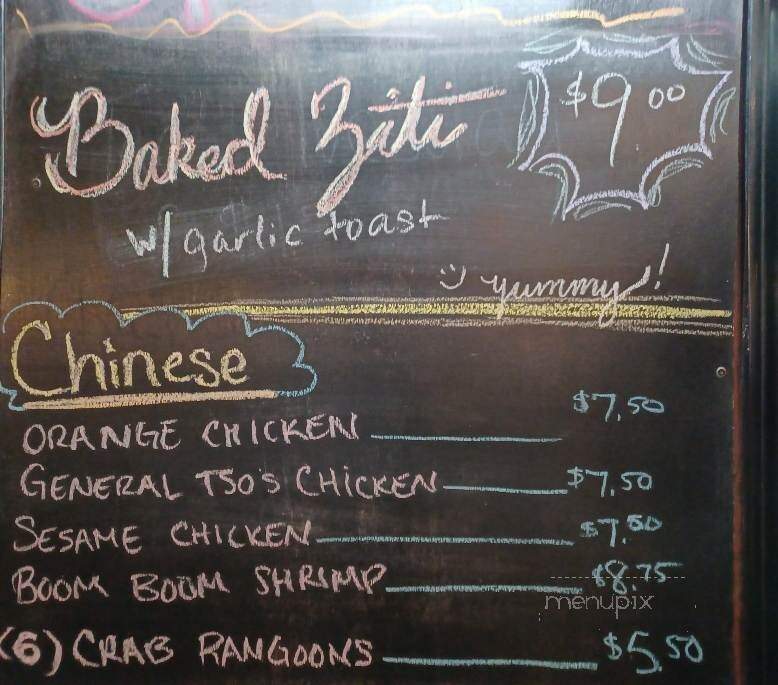 Baked Ziti
$9.00
w/ garlic toast
:) yummy!
Chinese
ORANGE CHICKEN $7.50
GENERAL TSO'S CHICKEN $7.50
SESAME CHICKEN $7.50
BOOM BOOM SHRIMP $8.75
menupix
(6) CRAB RANGOONS $5.50